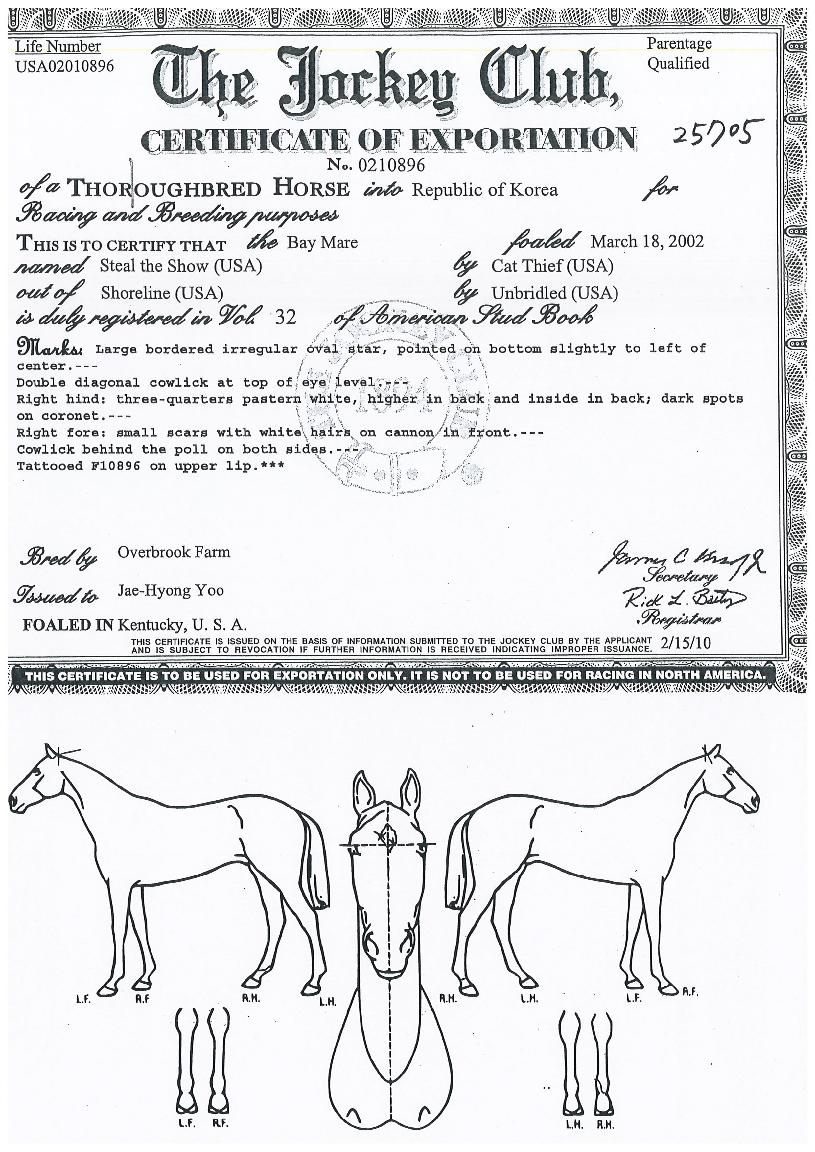 Life Number
USA02010896
Parentage
Qualified
The Jockey Club,
CERTIFICATE OF EXPORTATION
25705
No. 0210896
of a THOROUGHBRED HORSE into Republic of Korea for
Racing and Breeding purposes
THIS IS TO CERTIFY THAT the Bay Mare foaled March 18, 2002
named Steal the Show (USA) by Cat Thief (USA)
out of Shoreline (USA) by Unbridled (USA)
is duly registered in Vol. 32 of American Stud Book
Marks: Large bordered irregular oval star, pointed on bottom slightly to left of
center.---
Double diagonal cowlick at top of eye level.---
Right hind: three-quarters pastern white, higher in back and inside in back; dark spots
on coronet.---
Right fore: small scars with white hairs on cannon in front.---
Cowlick behind the poll on both sides.---
Tattooed F10896 on upper lip.***
1894
Bred by Overbrook Farm
Issued to Jae-Hyong Yoo
Secretary
Registrar
FOALED IN Kentucky, U. S. A.
THIS CERTIFICATE IS ISSUED ON THE BASIS OF INFORMATION SUBMITTED TO THE JOCKEY CLUB BY THE APPLICANT
AND IS SUBJECT TO REVOCATION IF FURTHER INFORMATION IS RECEIVED INDICATING IMPROPER ISSUANCE. 2/15/10
THIS CERTIFICATE IS TO BE USED FOR EXPORTATION ONLY. IT IS NOT TO BE USED FOR RACING IN NORTH AMERICA.
L.F. R.F R.H. L.H. R.H. L.H. L.F. R.F.
L.F. R.F. L.H. R.H.